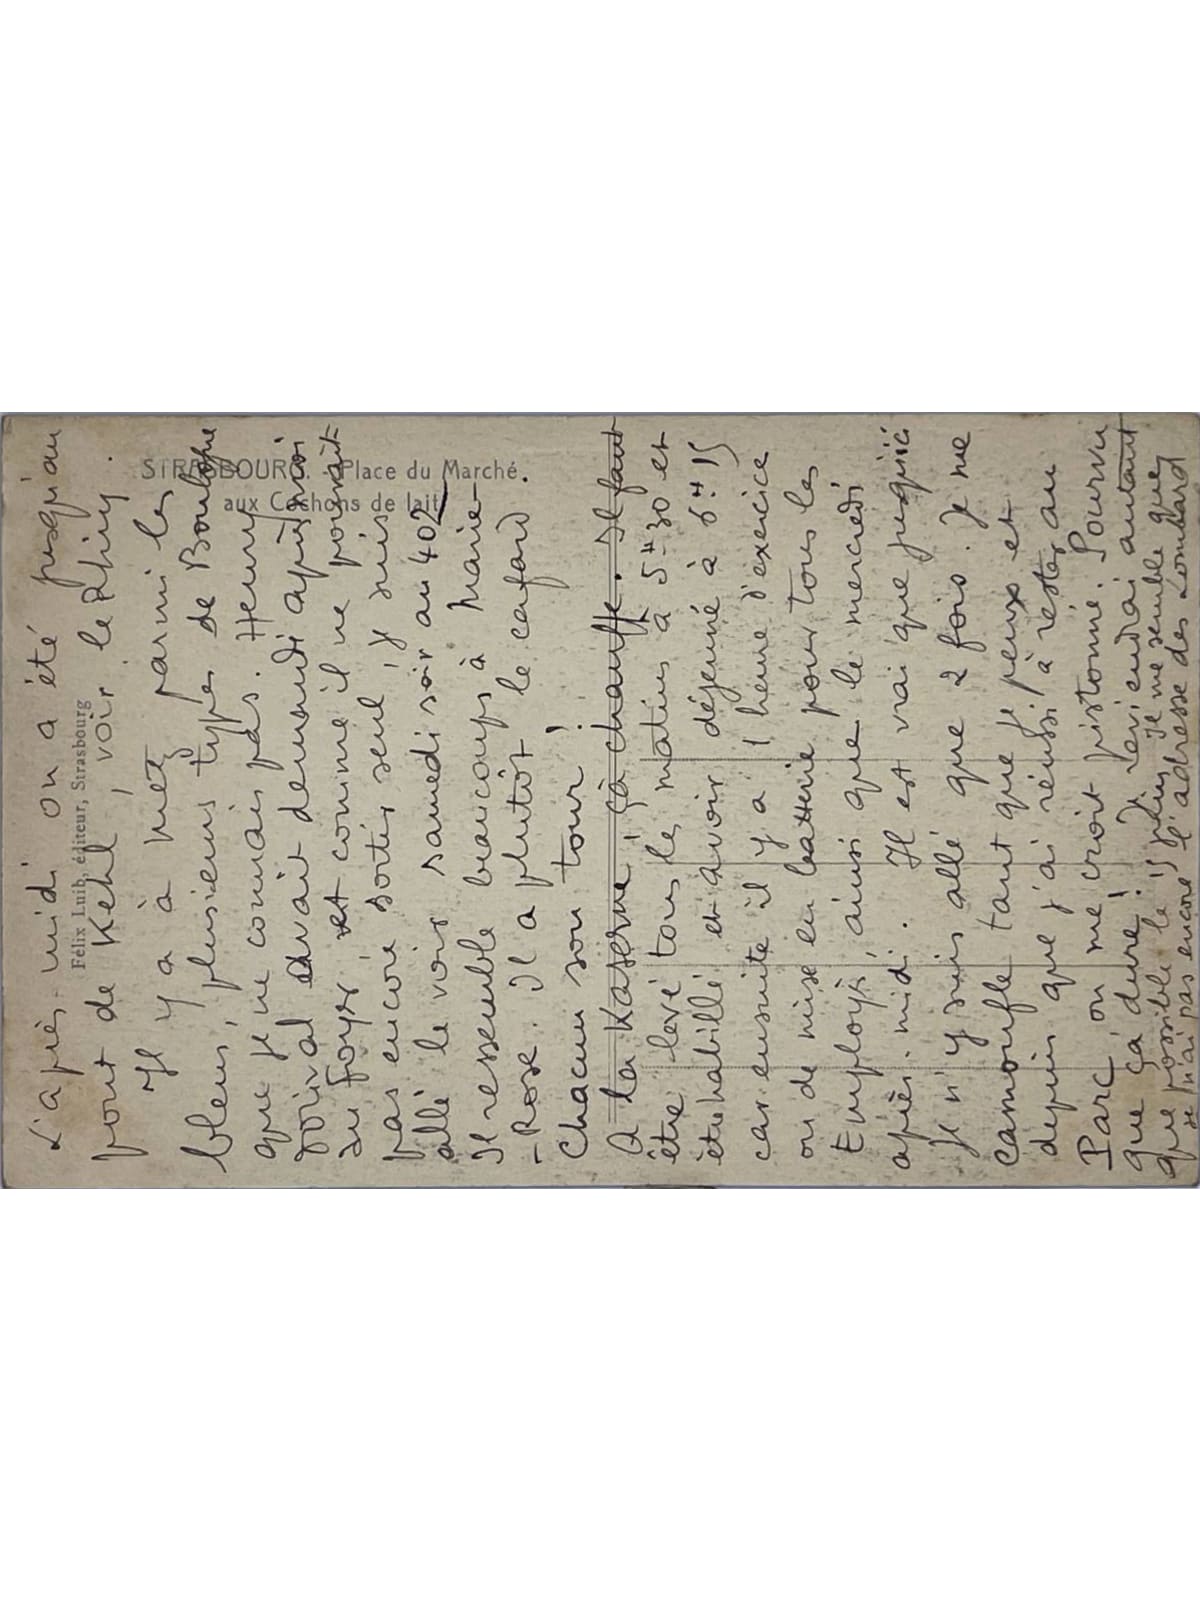 STRASBOURG. - Place du Marché.
aux Cochons de lait
Félix Luib, éditeur, Strasbourg
L'après-midi on a été jusqu'au
pont de Kehl, voir le Rhin.
Il y a à Metz parmi les
bleus, plusieurs types de Boulogne
que je ne connais pas. Henry
avait demandé après moi
au foyer, et comme il ne pouvait
pas encore sortir seul, j'y suis
allé le voir samedi soir au 402
Il ressemble beaucoup à Marie-
-Rose. Il a plutôt le cafard
Chacun son tour !
A la Kaserne, ça chauffe. Il faut
être levé tous les matins à 5H30 et
être habillé et avoir déjeuné à 6H15
car ensuite il y a 1 heure d'exercice
ou de mise en batterie pour tous les
Employés, ainsi que le mercredi
après-midi. Il est vrai que jusqu'ici
je n'y suis allé que 2 fois. Je me
camoufle tant que je peux et
depuis que j'ai réussi à rester au
Parc, on me croit pistonné. Pourvu
que ça dure ! J'y reviendrai autant
que possible le plus, je me semble que
je n'ai pas encore l'adresse des Lombard